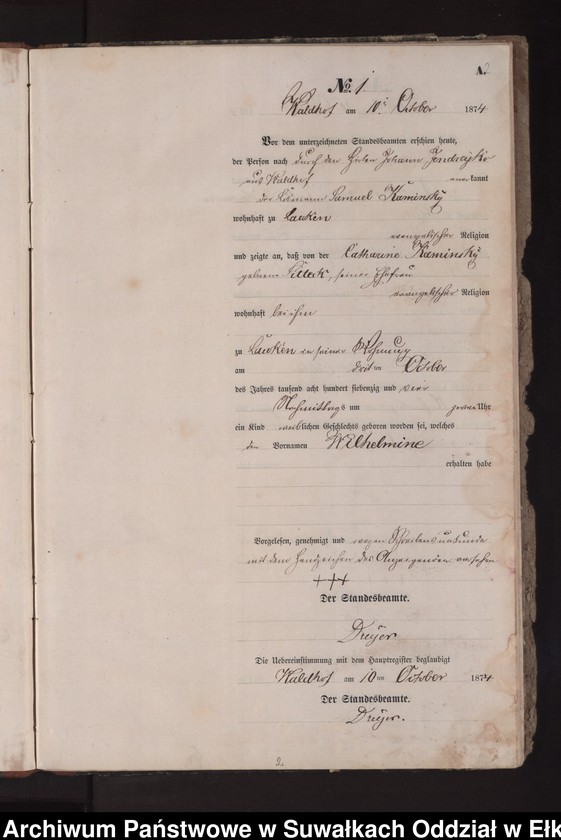 A.
No. 1
Waldhof am 10. October 1874
Vor dem unterzeichneten Standesbeamten erschien heute,
der Person nach durch den Johann Jendreyko
aus Waldhof anerkannt
der Losmann Samuel Kaminsky
wohnhaft zu Lauken
evangelischer Religion
und zeigte an, daß von der Catharine Kaminsky
geborne seiner Ehefrau
evangelischer Religion
wohnhaft bei ihm
zu Lauken in seiner Wohnung
am dritten October
des Jahres tausend acht hundert siebenzig und vier
Nachmittags um Uhr
ein Kind weiblichen Geschlechts geboren worden sei, welches
den Vornamen Wilhelmine
erhalten habe
Vorgelesen, genehmigt und wegen Schreibensunkunde
mit dem Handzeichen des Anzeigenden versehen
+++
Der Standesbeamte.
Dreyer
Die Uebereinstimmung mit dem Hauptregister beglaubigt
Waldhof am 10ten October 1874
Der Standesbeamte.
Dreyer.
2.
Archiwum Państwowe w Suwałkach Oddział w Ełk